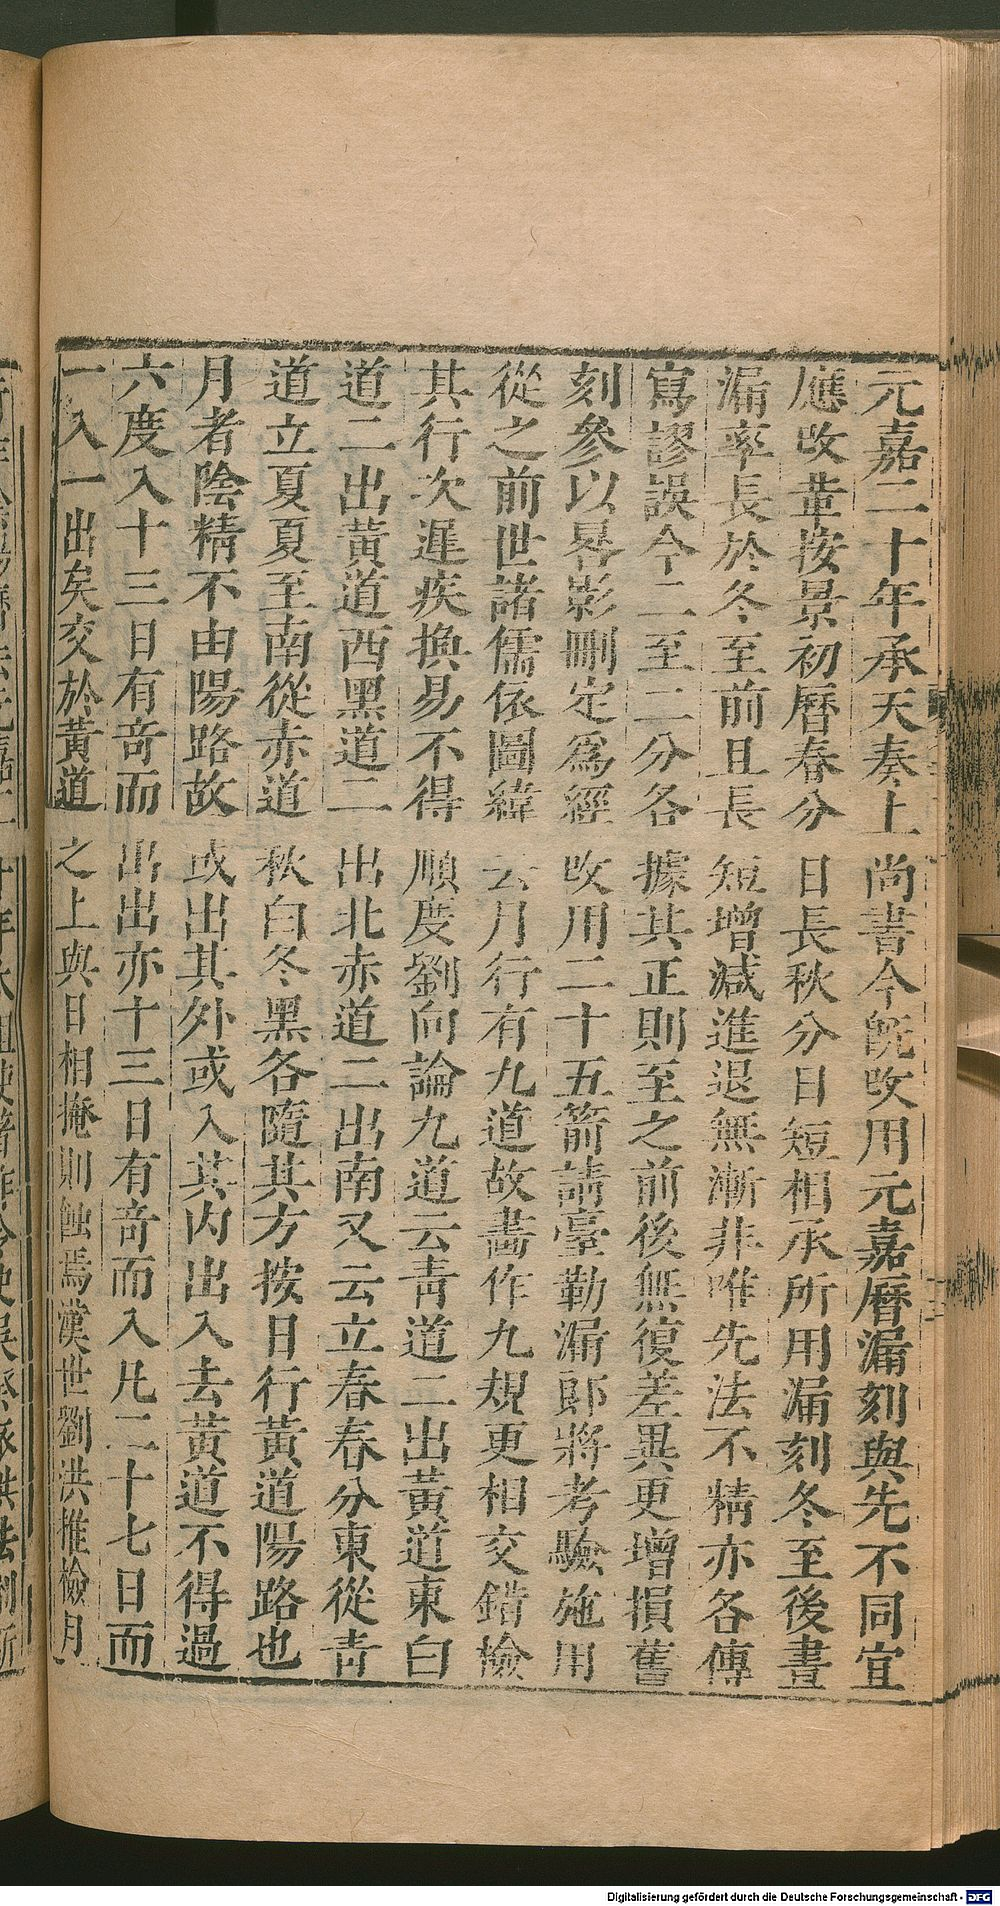 元嘉二十年承天奏上尚書今既改用元嘉曆漏刻與先不同宜
應改革按景初曆春分日長秋分日短相承所用漏刻冬至後晝
漏率長於冬至前且長短增減進退無漸非唯先法不精亦各傳
寫謬誤今二至二分各據其正則至之前後無復差異更增損舊
刻參以晷影刪定爲經改用二十五箭請臺勒漏郎將考驗施用
從之前世諸儒依圖緯云月行有九道故畫作九規更相交錯檢
其行次遲疾換易不得順度劉向論九道云青道二出黃道東白
道二出黃道西黑道二出北赤道二出南又云立春春分東從青
道立夏夏至南從赤道秋白冬黑各隨其方按日行黃道陽路也
月者陰精不由陽路故或出其外或入其內出入去黃道不得過
六度入十三日有奇而出出亦十三日有奇而入凡二十七日而
一入一出矣交於黃道之上與日相掩則蝕焉漢世劉洪推檢月
Digitalisierung gefördert durch die Deutsche Forschungsgemeinschaft - DFG